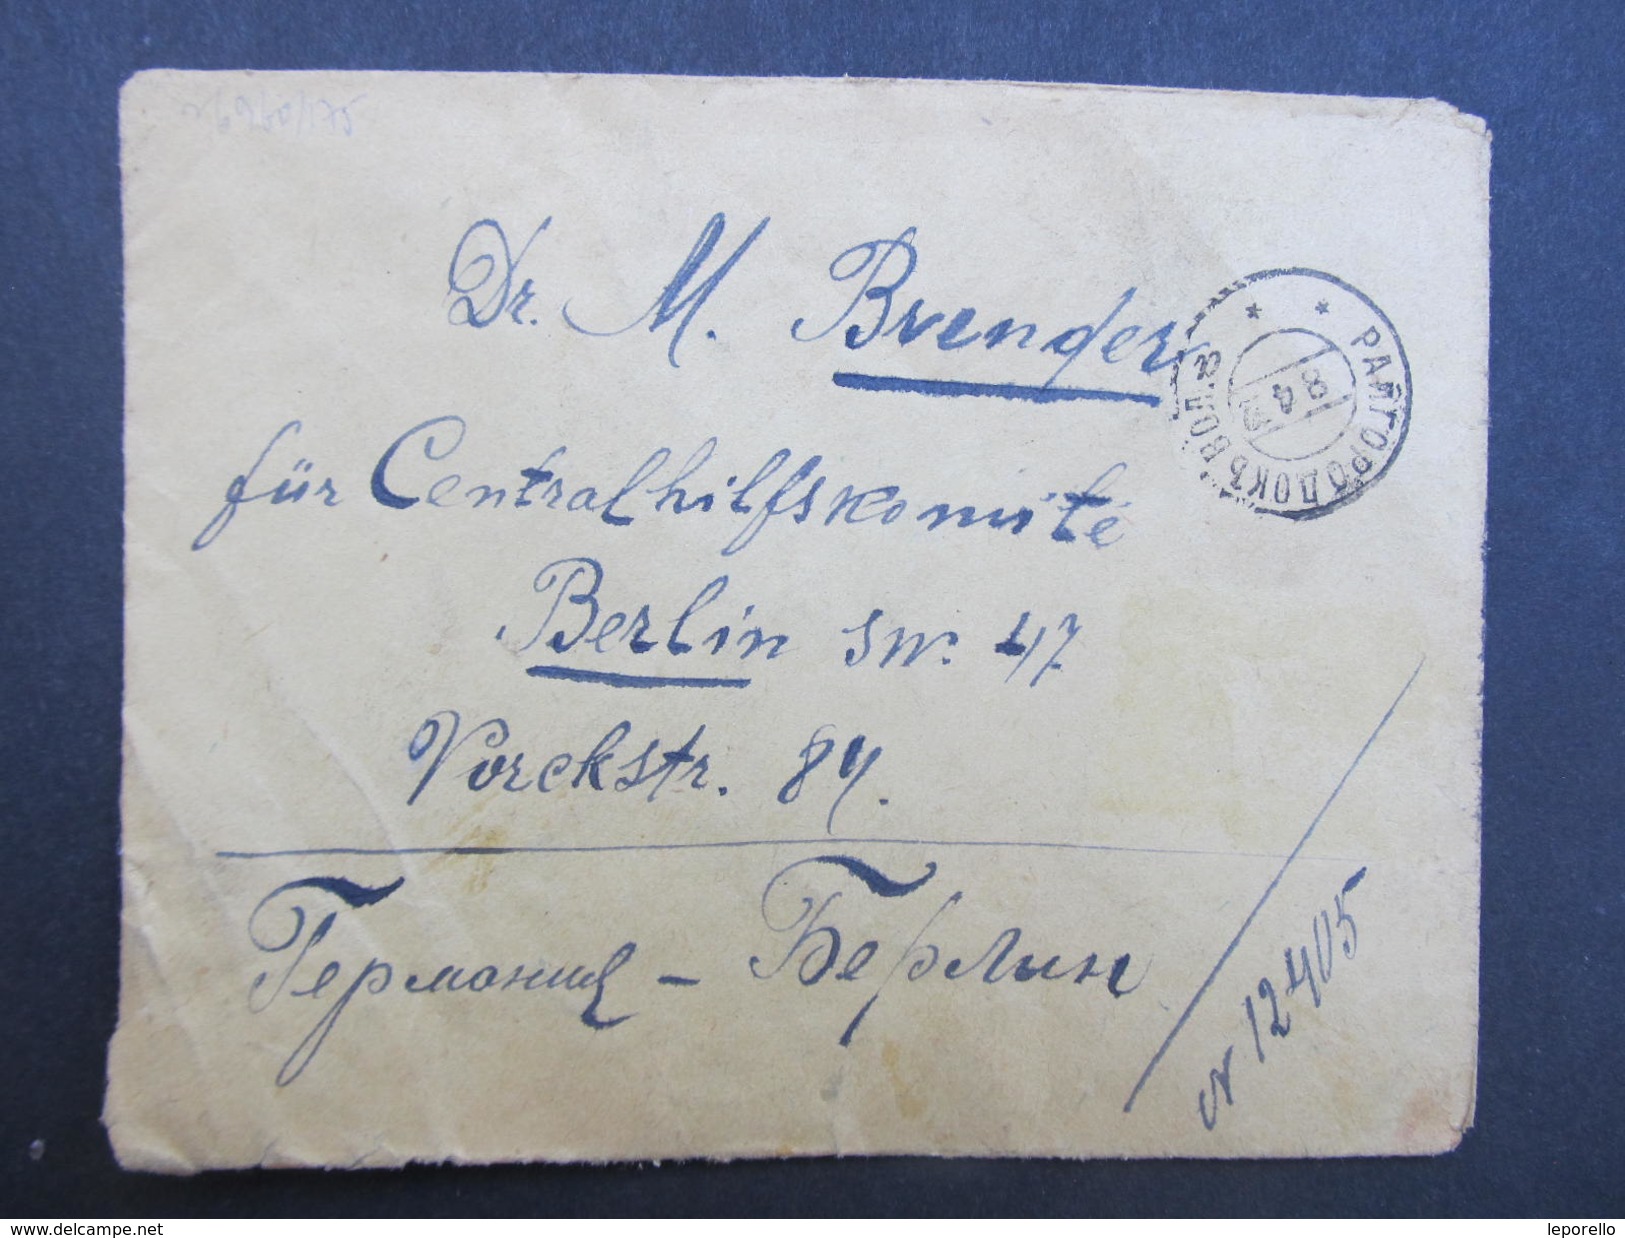 6960/175
Dr. M. Brender
für Centralhilfskomité
Berlin SW. 47.
Yorckstr. 84.
Германия – Берлин
N 12405
РАЙГОРОДОКЪ ВОЛ.
8 4
www.delcampe.net
leporello